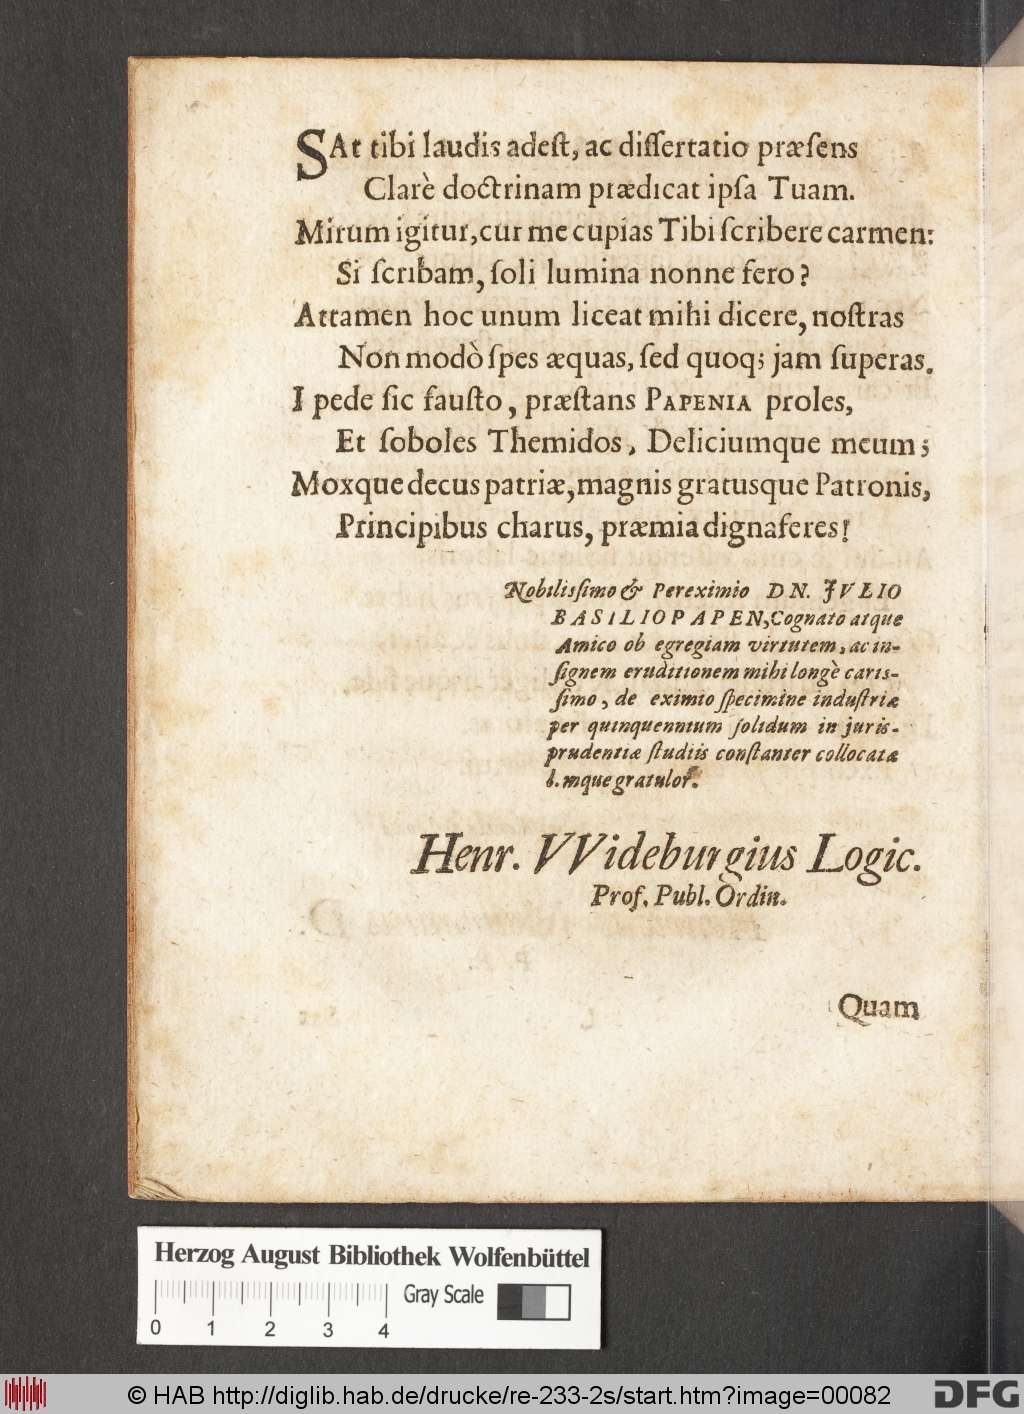 SAt tibi laudis adeſt, ac diſſertatio præſens
Clarè doctrinam prædicat ipſa Tuam.
Mirum igitur, cur me cupias Tibi ſcribere carmen:
Si ſcribam, ſoli lumina nonne fero?
Attamen hoc unum liceat mihi dicere, noſtras
Non modò ſpes æquas, ſed quoq; jam ſuperas.
I pede ſic fauſto, præſtans PAPENIA proles,
Et ſoboles Themidos, Deliciumque meum;
Moxque decus patriæ, magnis gratusque Patronis,
Principibus charus, præmia digna feres!
Nobilisſimo & Pereximio DN. JVLIO
BASILIO PAPEN, Cognato atque
Amico ob egregiam virtutem, ac in-
ſignem eruditionem mihi longè caris-
ſimo, de eximio ſpecimine induſtriæ
per quinquennium ſolidum in juris-
prudentiæ ſtudiis conſtanter collocatæ
l. mque gratulor.
Henr. VVideburgius Logic.
Prof. Publ. Ordin.
Quam
Herzog August Bibliothek Wolfenbüttel
Gray Scale
0 1 2 3 4
© HAB http://diglib.hab.de/drucke/re-233-2s/start.htm?image=00082
DFG